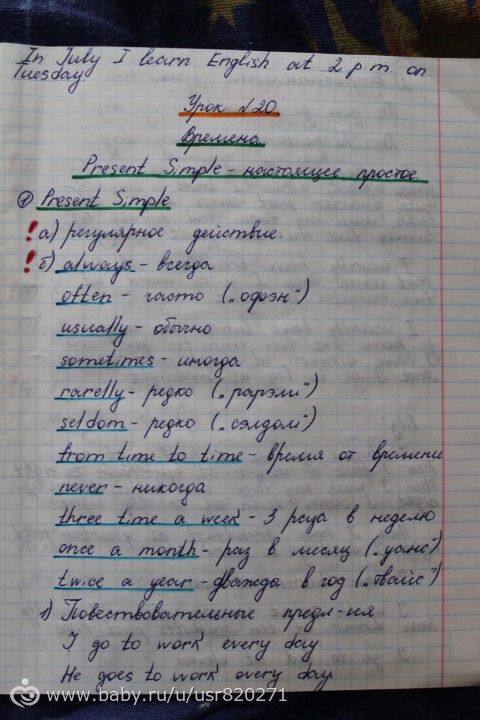 In July I learn English at 2 p.m. on
Tuesday
Урок №20
Времена
Present Simple - настоящее простое
① Present Simple
! а) регулярное действие.
! б) always - всегда
often - часто („офэн")
usually - обычно
sometimes - иногда
rarelly - редко („рарэли")
seldom - редко („сэлдом")
from time to time - время от времени
never - никогда
three time a week - 3 раза в неделю
once a month - раз в месяц („уанс")
twice a year - дважды в год („твайс")
1) Повествовательные предл-ия
I go to work every day.
He goes to work every day
www.baby.ru/u/usr820271